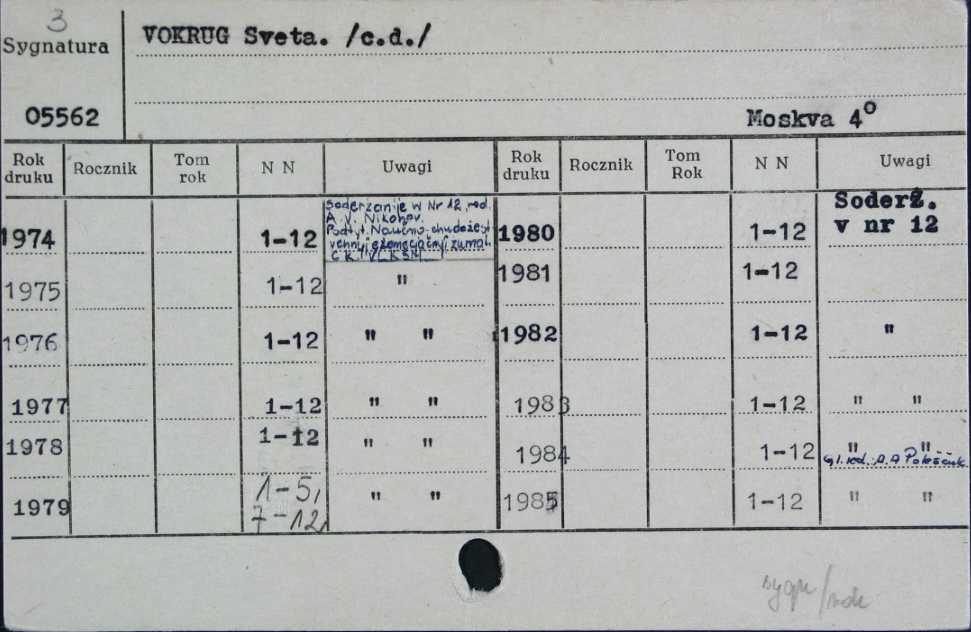 3
Sygnatura
05562
VOKRUG Sveta. /c.d./
Moskva 4º
Rok druku Rocznik Tom rok N N Uwagi Rok druku Rocznik Tom Rok N N Uwagi
1974 1-12 Soderżanije w Nr 12, red.
A. V. Nikonov.
Podtyt. Naučno-chudožest
vennyj ežemesjačnyj žurnal
CK VLKSM
1975 1-12 "
1976 1-12 " "
1977 1-12 " "
1978 1-12 " "
1979 1-5, 7-12, " "
1980 1-12 Soderž.
v nr 12
1981 1-12
1982 1-12 "
1983 1-12 " "
1984 1-12 " "
gl. red. A. A. Poleščuk
1985 1-12 " "